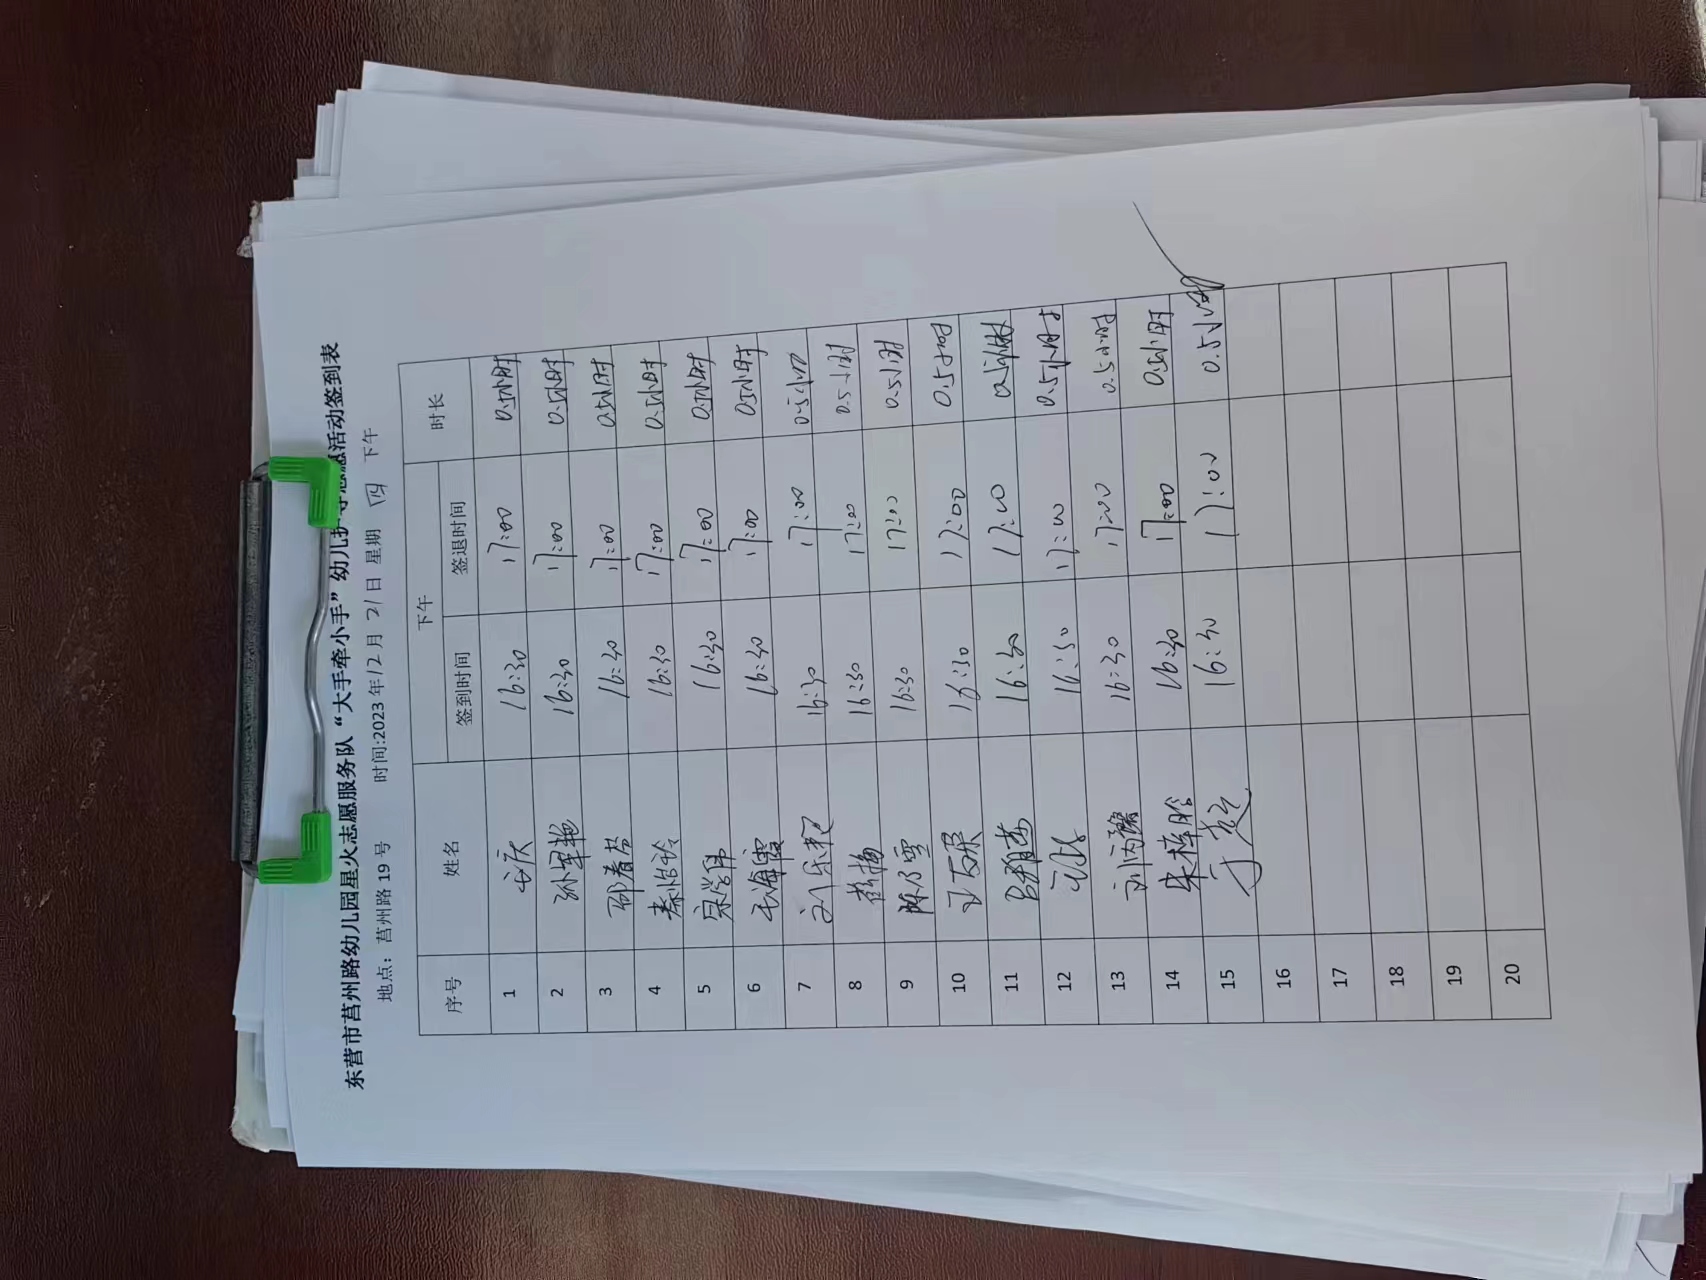 东营市莒州路幼儿园星火志愿服务队“大手牵小手”幼儿护导志愿活动签到表
地点：莒州路19号 时间:2023年12月21日 星期 四 下午
序号 姓名 下午 时长
签到时间 签退时间
1 16:30 17:00 0.5小时
2 孙军艳 16:30 17:00 0.5小时
3 邵春芬 16:30 17:00 0.5小时
4 秦怡玲 16:30 17:00 0.5小时
5 宋学伟 16:30 17:00 0.5小时
6 毛海霞 16:30 17:00 0.5小时
7 16:30 17:00 0.5小时
8 16:30 17:00 0.5小时
9 陈乃雪 16:30 17:00 0.5小时
10 16:30 17:00 0.5小时
11 16:30 17:00 0.5小时
12 16:30 17:00 0.5小时
13 刘丙麟 16:30 17:00 0.5小时
14 朱梓脍 16:30 17:00 0.5小时
15 于超 16:30 17:00 0.5小时
16
17
18
19
20